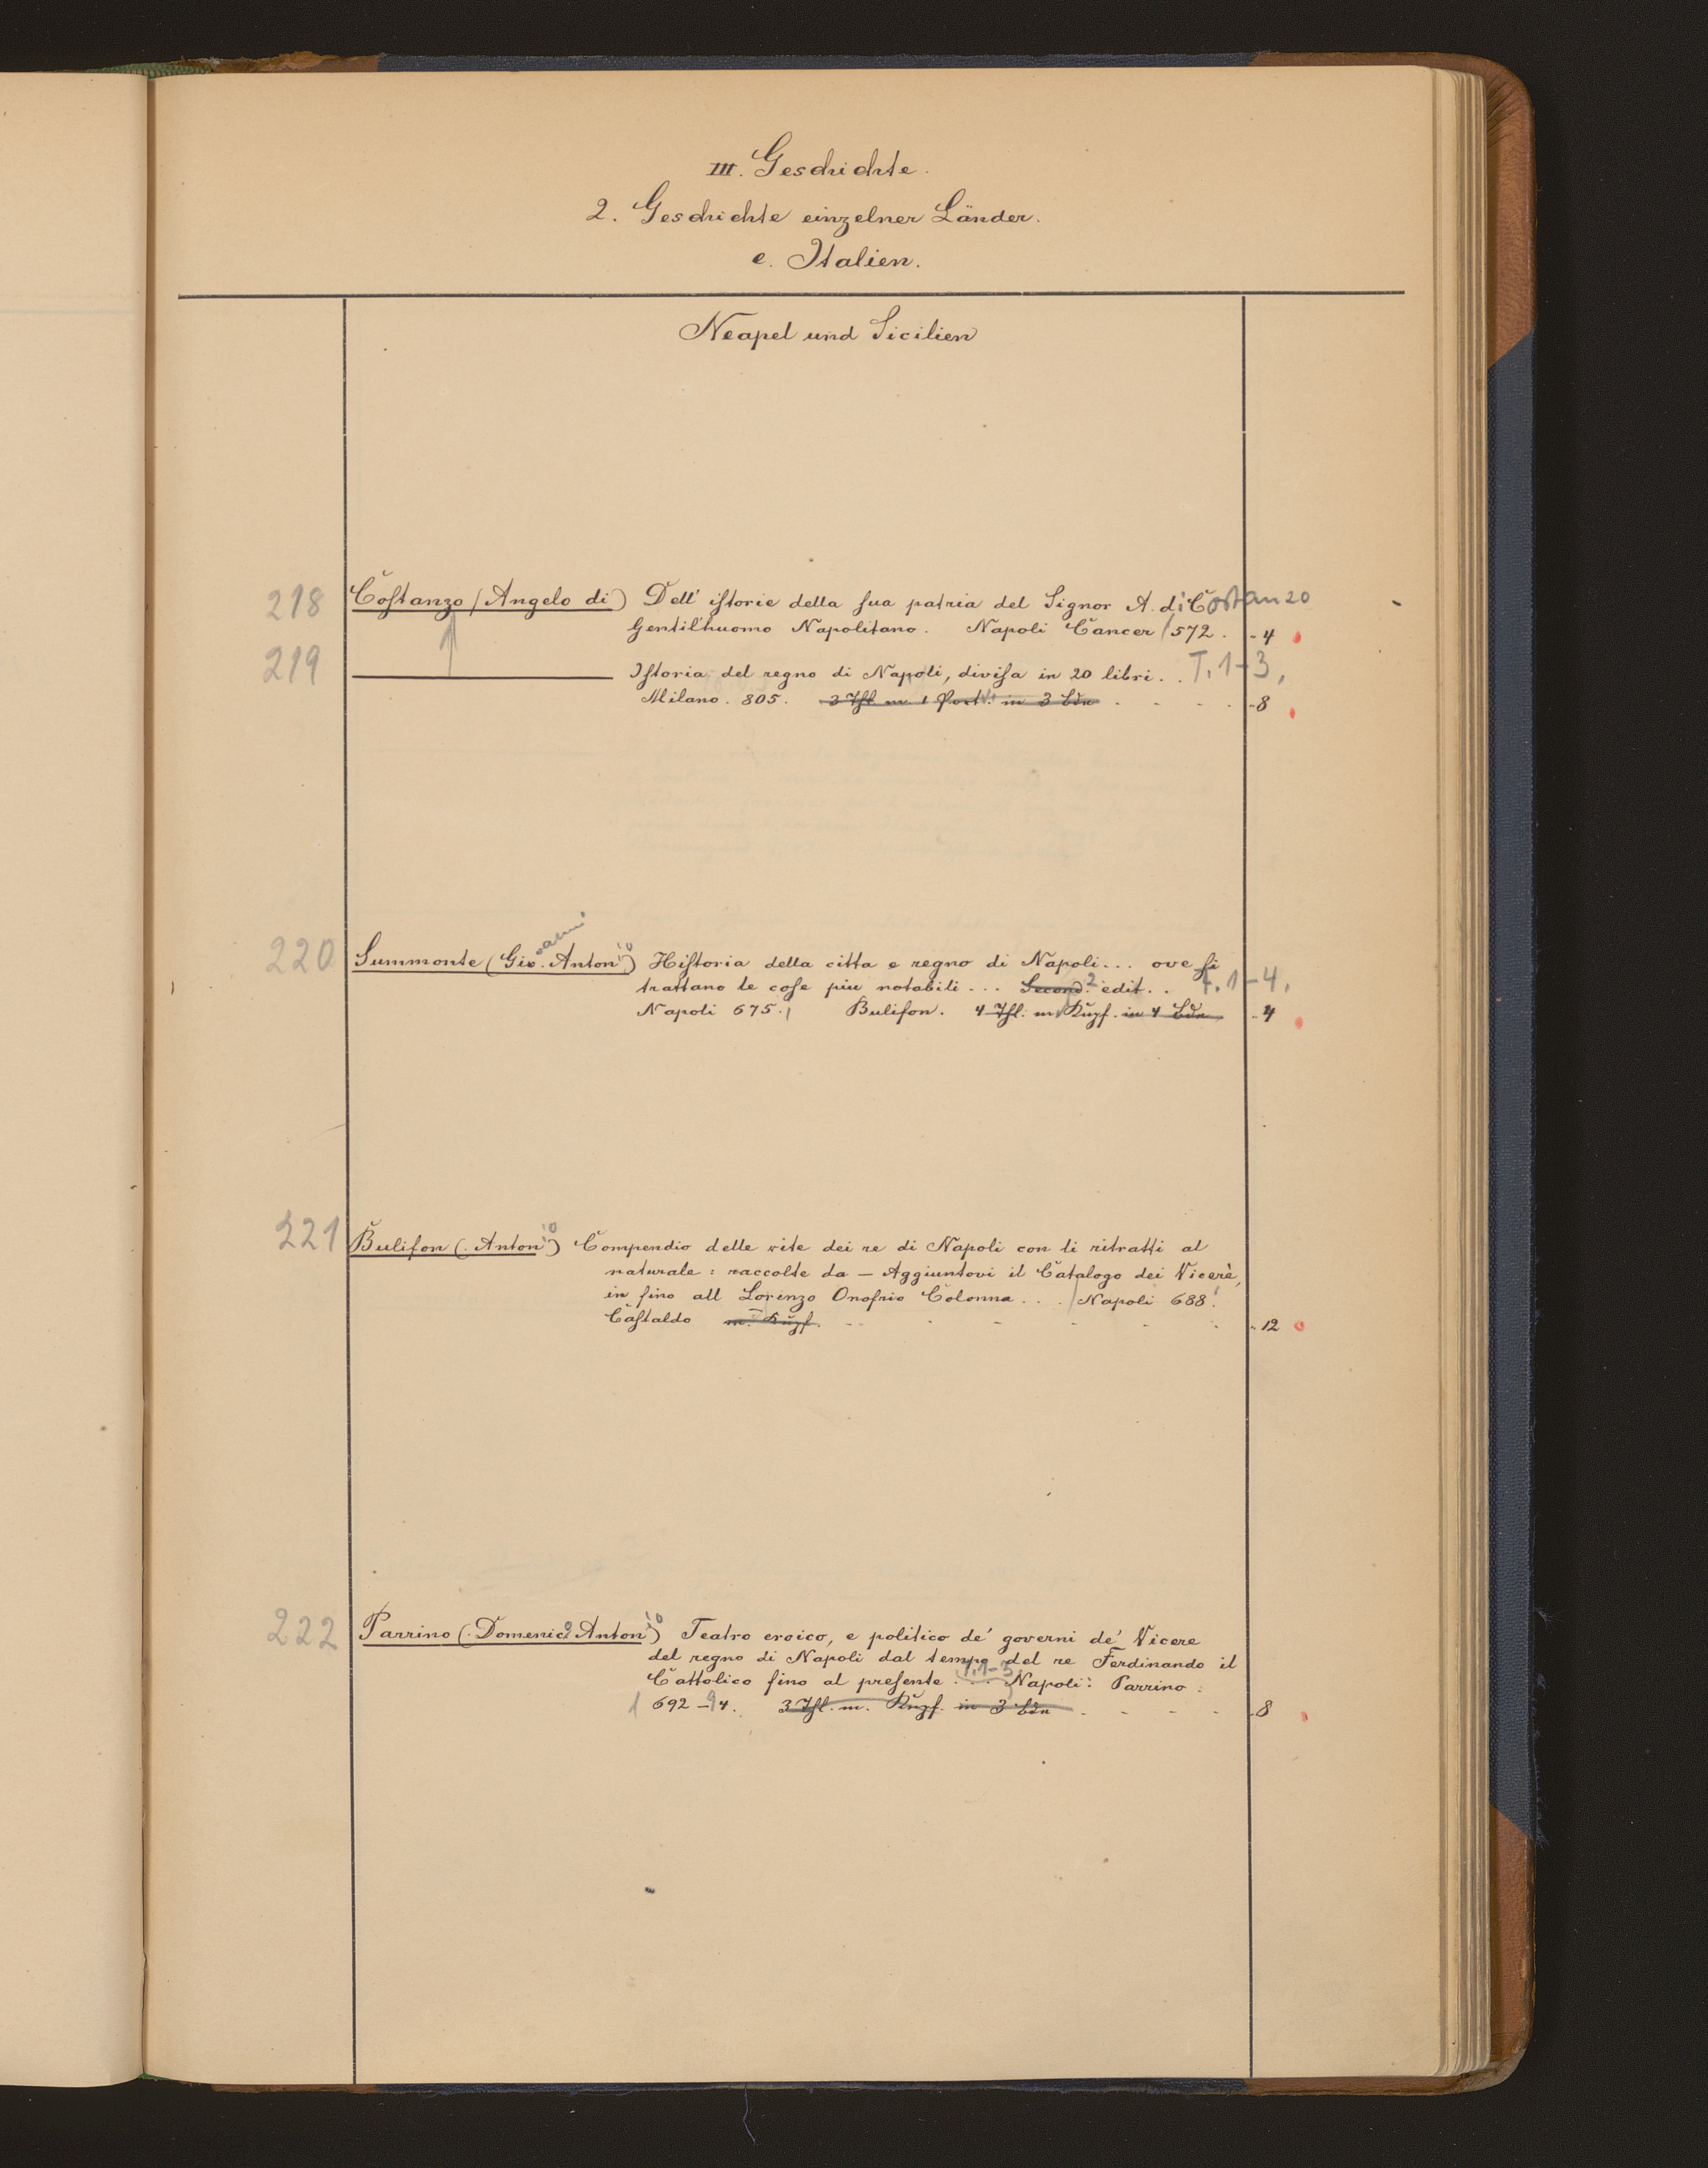 III. Geschichte.
2. Geschichte einzelner Länder.
e. Italien.
Neapel und Sicilien
218 Costanzo (Angelo di) Dell' istorie della sua patria del Signor A. di Costanzo
Gentil'huomo Napolitano. Napoli Cancer 1572. - 4
219 ——— Istoria del regno di Napoli, divisa in 20 libri. . T. 1-3,
Milano. 805. 3 Thl m. 1 Port. in 3 Bdn - - - - - 8
220 Summonte (Giovanni Antonio) Historia della citta e regno di Napoli... ove si
trattano le cose piu notabili ... Second. 2 edit. . T. 1-4.
Napoli 675. Bulifon. 4 Thl. m. Kupf. in 4 Bdn - 4
221 Bulifon (Antonio) Compendio delle vite dei re di Napoli con li ritratti al
naturale: raccolte da — Aggiuntovi il Catalogo dei Vicerè,
in fino all Lorenzo Onofrio Colonna . . . Napoli 688.
Castaldo m. Kupf. - - - - - - - 12
222 Parrino (Domenico Antonio) Teatro eroico, e politico de' governi de' Vicere
del regno di Napoli dal tempo del re Ferdinando il
Cattolico fino al presente . . . T. 1-3. Napoli: Parrino.
1692-94. 3 Thl. m. Kupf. in 3 Bdn - - - - - 8